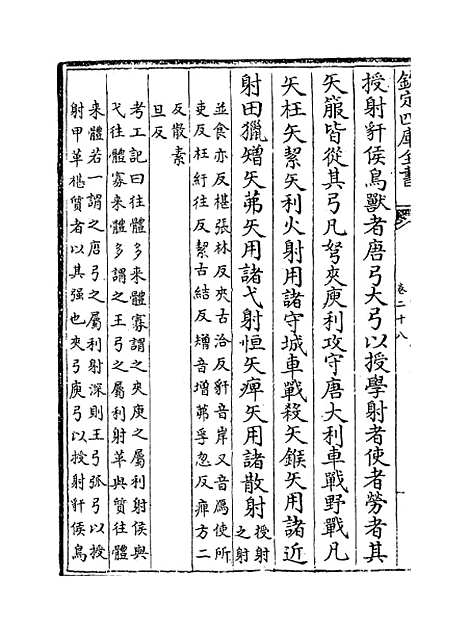 欽定四庫全書
卷二十八
授射豻侯鳥獸者唐弓大弓以授學射者使者勞者其
矢箙皆從其弓凡弩夾庾利攻守唐大利車戰野戰凡
矢枉矢絜矢利火射用諸守城車戰殺矢鍭矢用諸近
射田獵矰矢茀矢用諸弋射恒矢痺矢用諸散射
授射
之射
並食亦反椹張林反夾古洽反豻音岸又音焉使所
吏反枉紆往反絜古結反矰音增茀孚忽反痺方二
反散素
旦反
考工記曰往體多來體寡謂之夾庾之屬利射侯與
弋往體寡來體多謂之王弓之屬利射革與質往體
來體若一謂之唐弓之屬利射深則王弓弧弓以授
射甲革椹質者以其强也夾弓庾弓以授射豻侯鳥